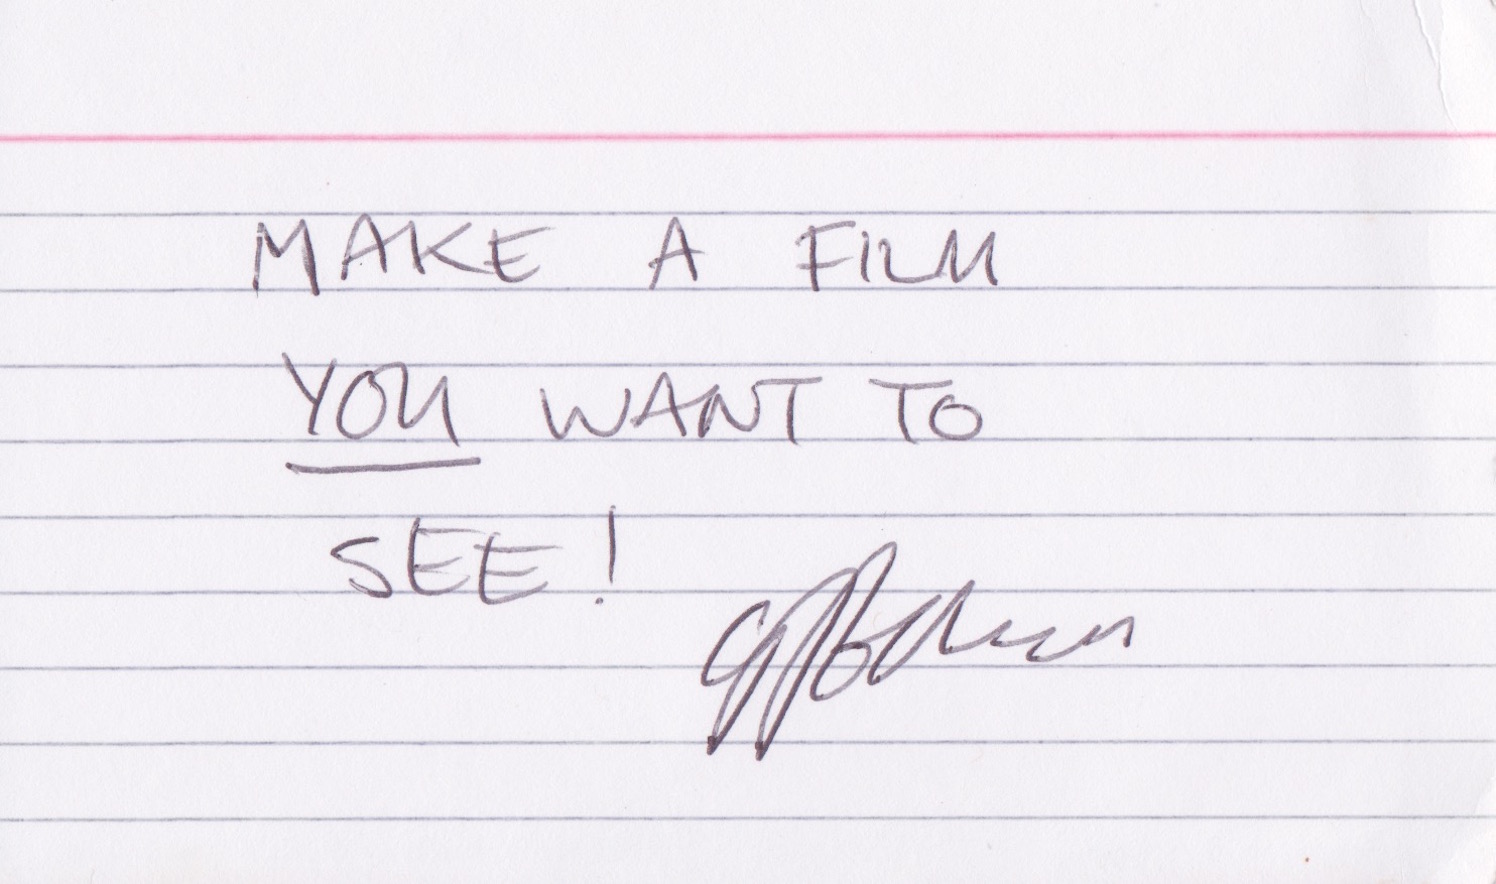 MAKE A FILM
YOU WANT TO
SEE!